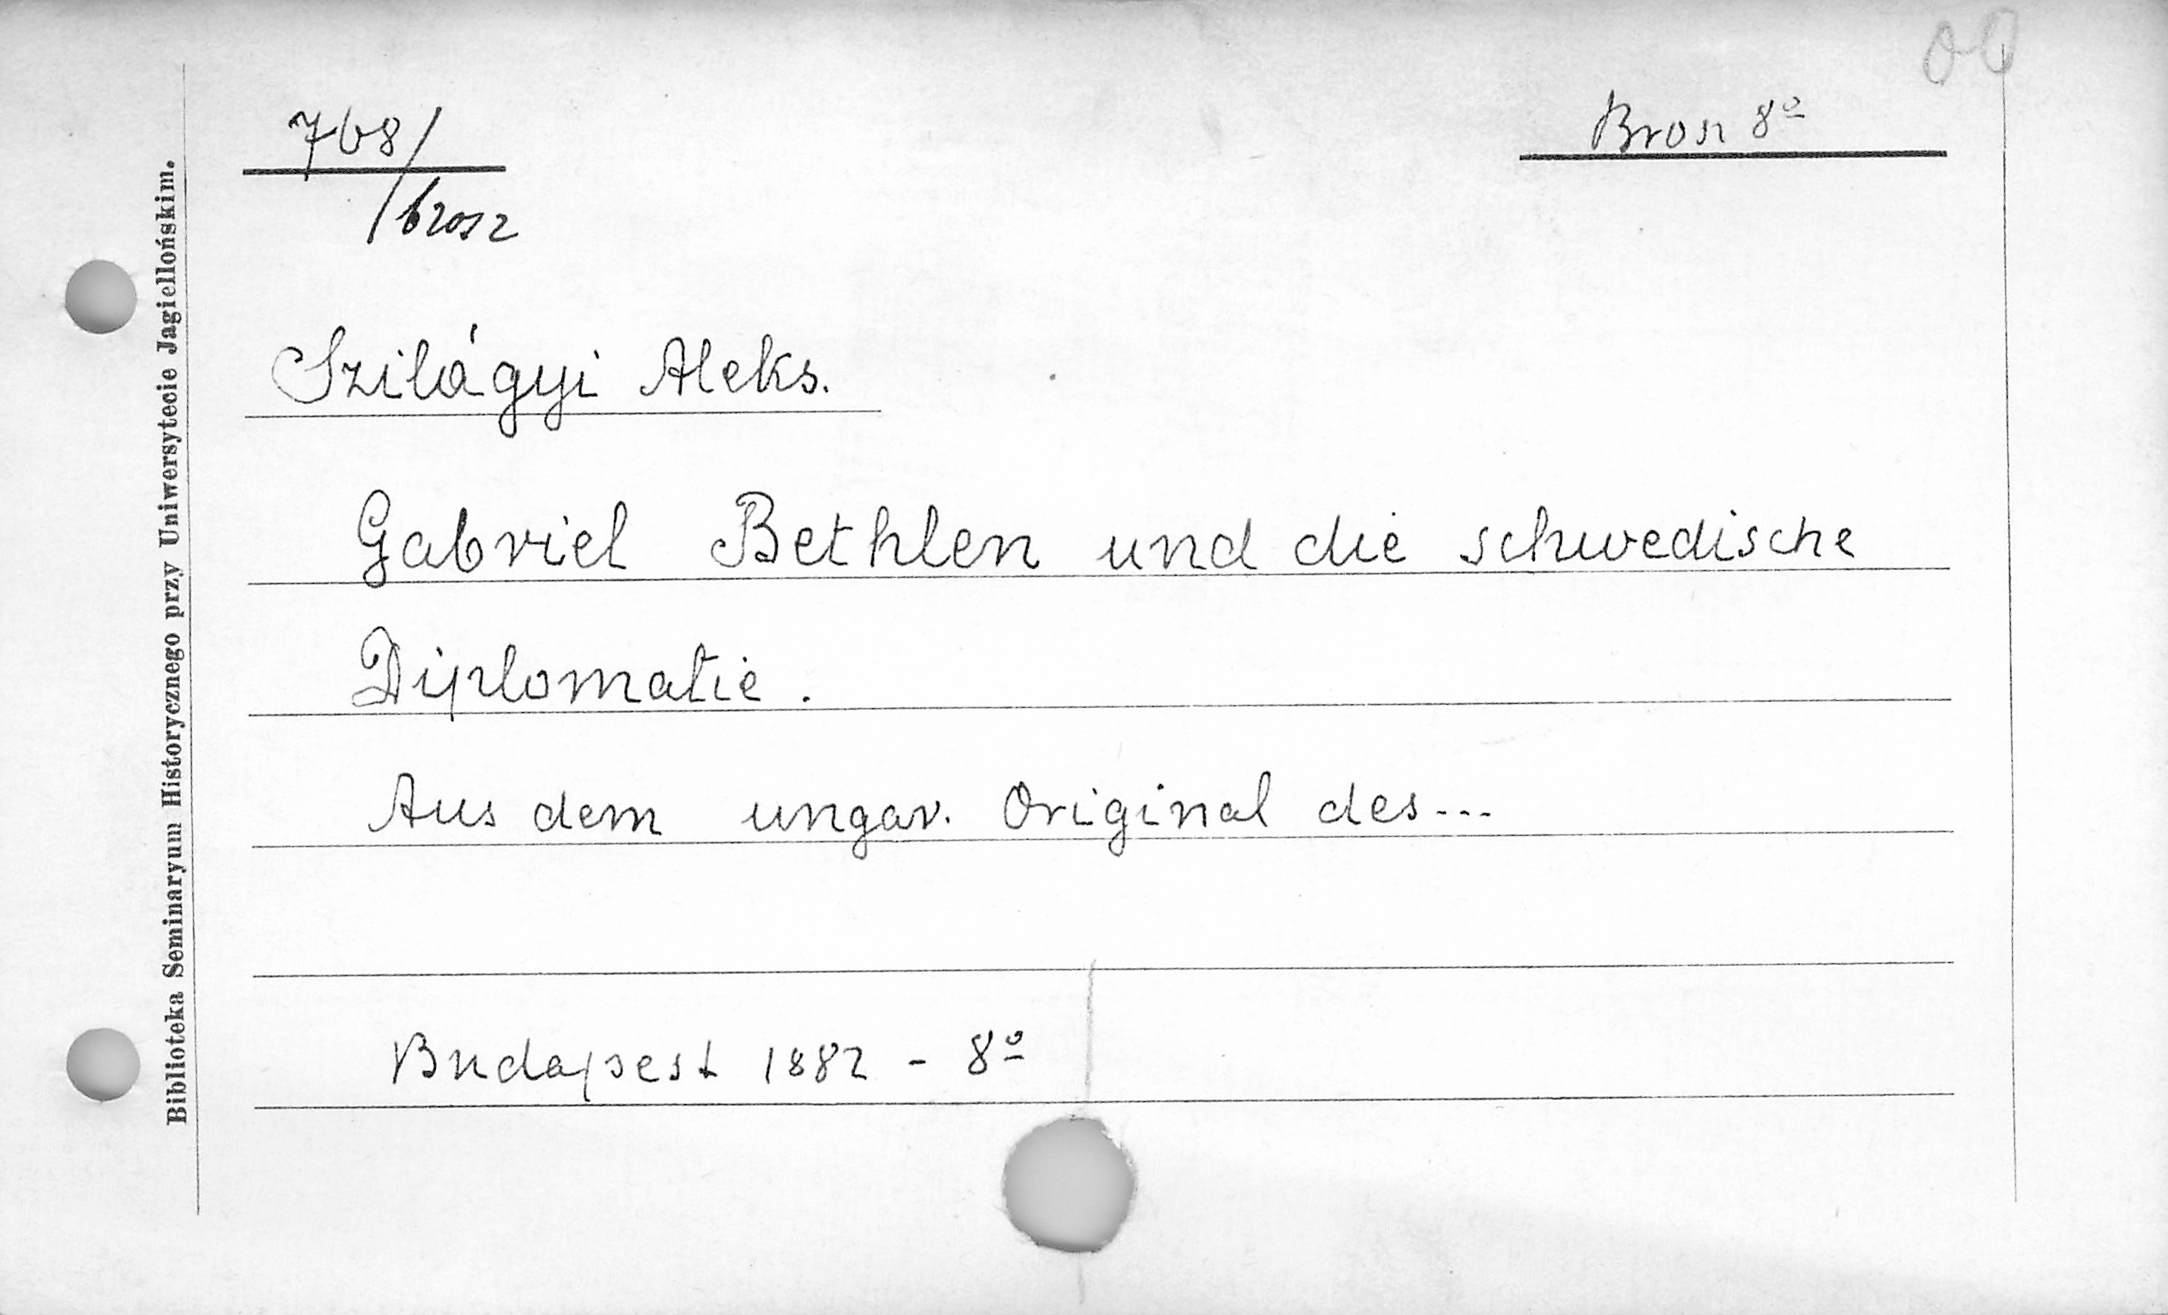 00
768/
/brosz
Brosz 8º
Szilágyi Aleks.
Gabriel Bethlen und die schwedische
Diplomatie.
Aus dem ungar. Original des...
Budapest 1882 - 8º
Biblioteka Seminaryum Historycznego przy Uniwersytecie Jagiellońskim.